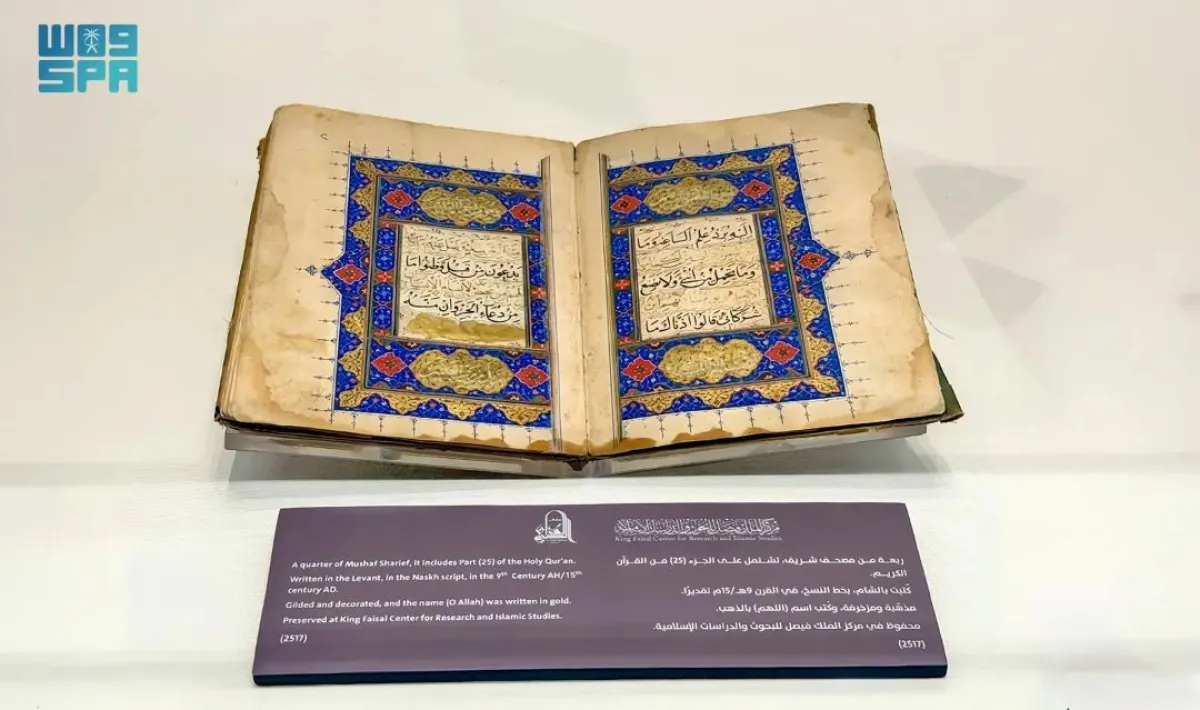 واس
SPA
اليه يرد علم الساعة وما
وما تحمل من أنثى ولا تضع
شركائي قالوا آذناك ما
يدعون من قبل وظنوا ما
من دعاء الخير وان مسه
مركز الملك فيصل للبحوث والدراسات الإسلامية
King Faisal Center for Research and Islamic Studies
A quarter of Mushaf Sharief, it includes Part (25) of the Holy Qur'an.
Written in the Levant, in the Naskh script, in the 9th Century AH/15th
century AD.
Gilded and decorated, and the name (O Allah) was written in gold.
Preserved at King Faisal Center for Research and Islamic Studies.
(2517)
ربعة من مصحف شريف، تشتمل على الجزء (25) من القرآن
الكريم.
كُتبت بالشام، بخط النسخ، في القرن 9هـ/15م تقديرًا.
مذهّبة ومزخرفة، وكُتب اسم (اللهم) بالذهب.
محفوظ في مركز الملك فيصل للبحوث والدراسات الإسلامية.
(2517)